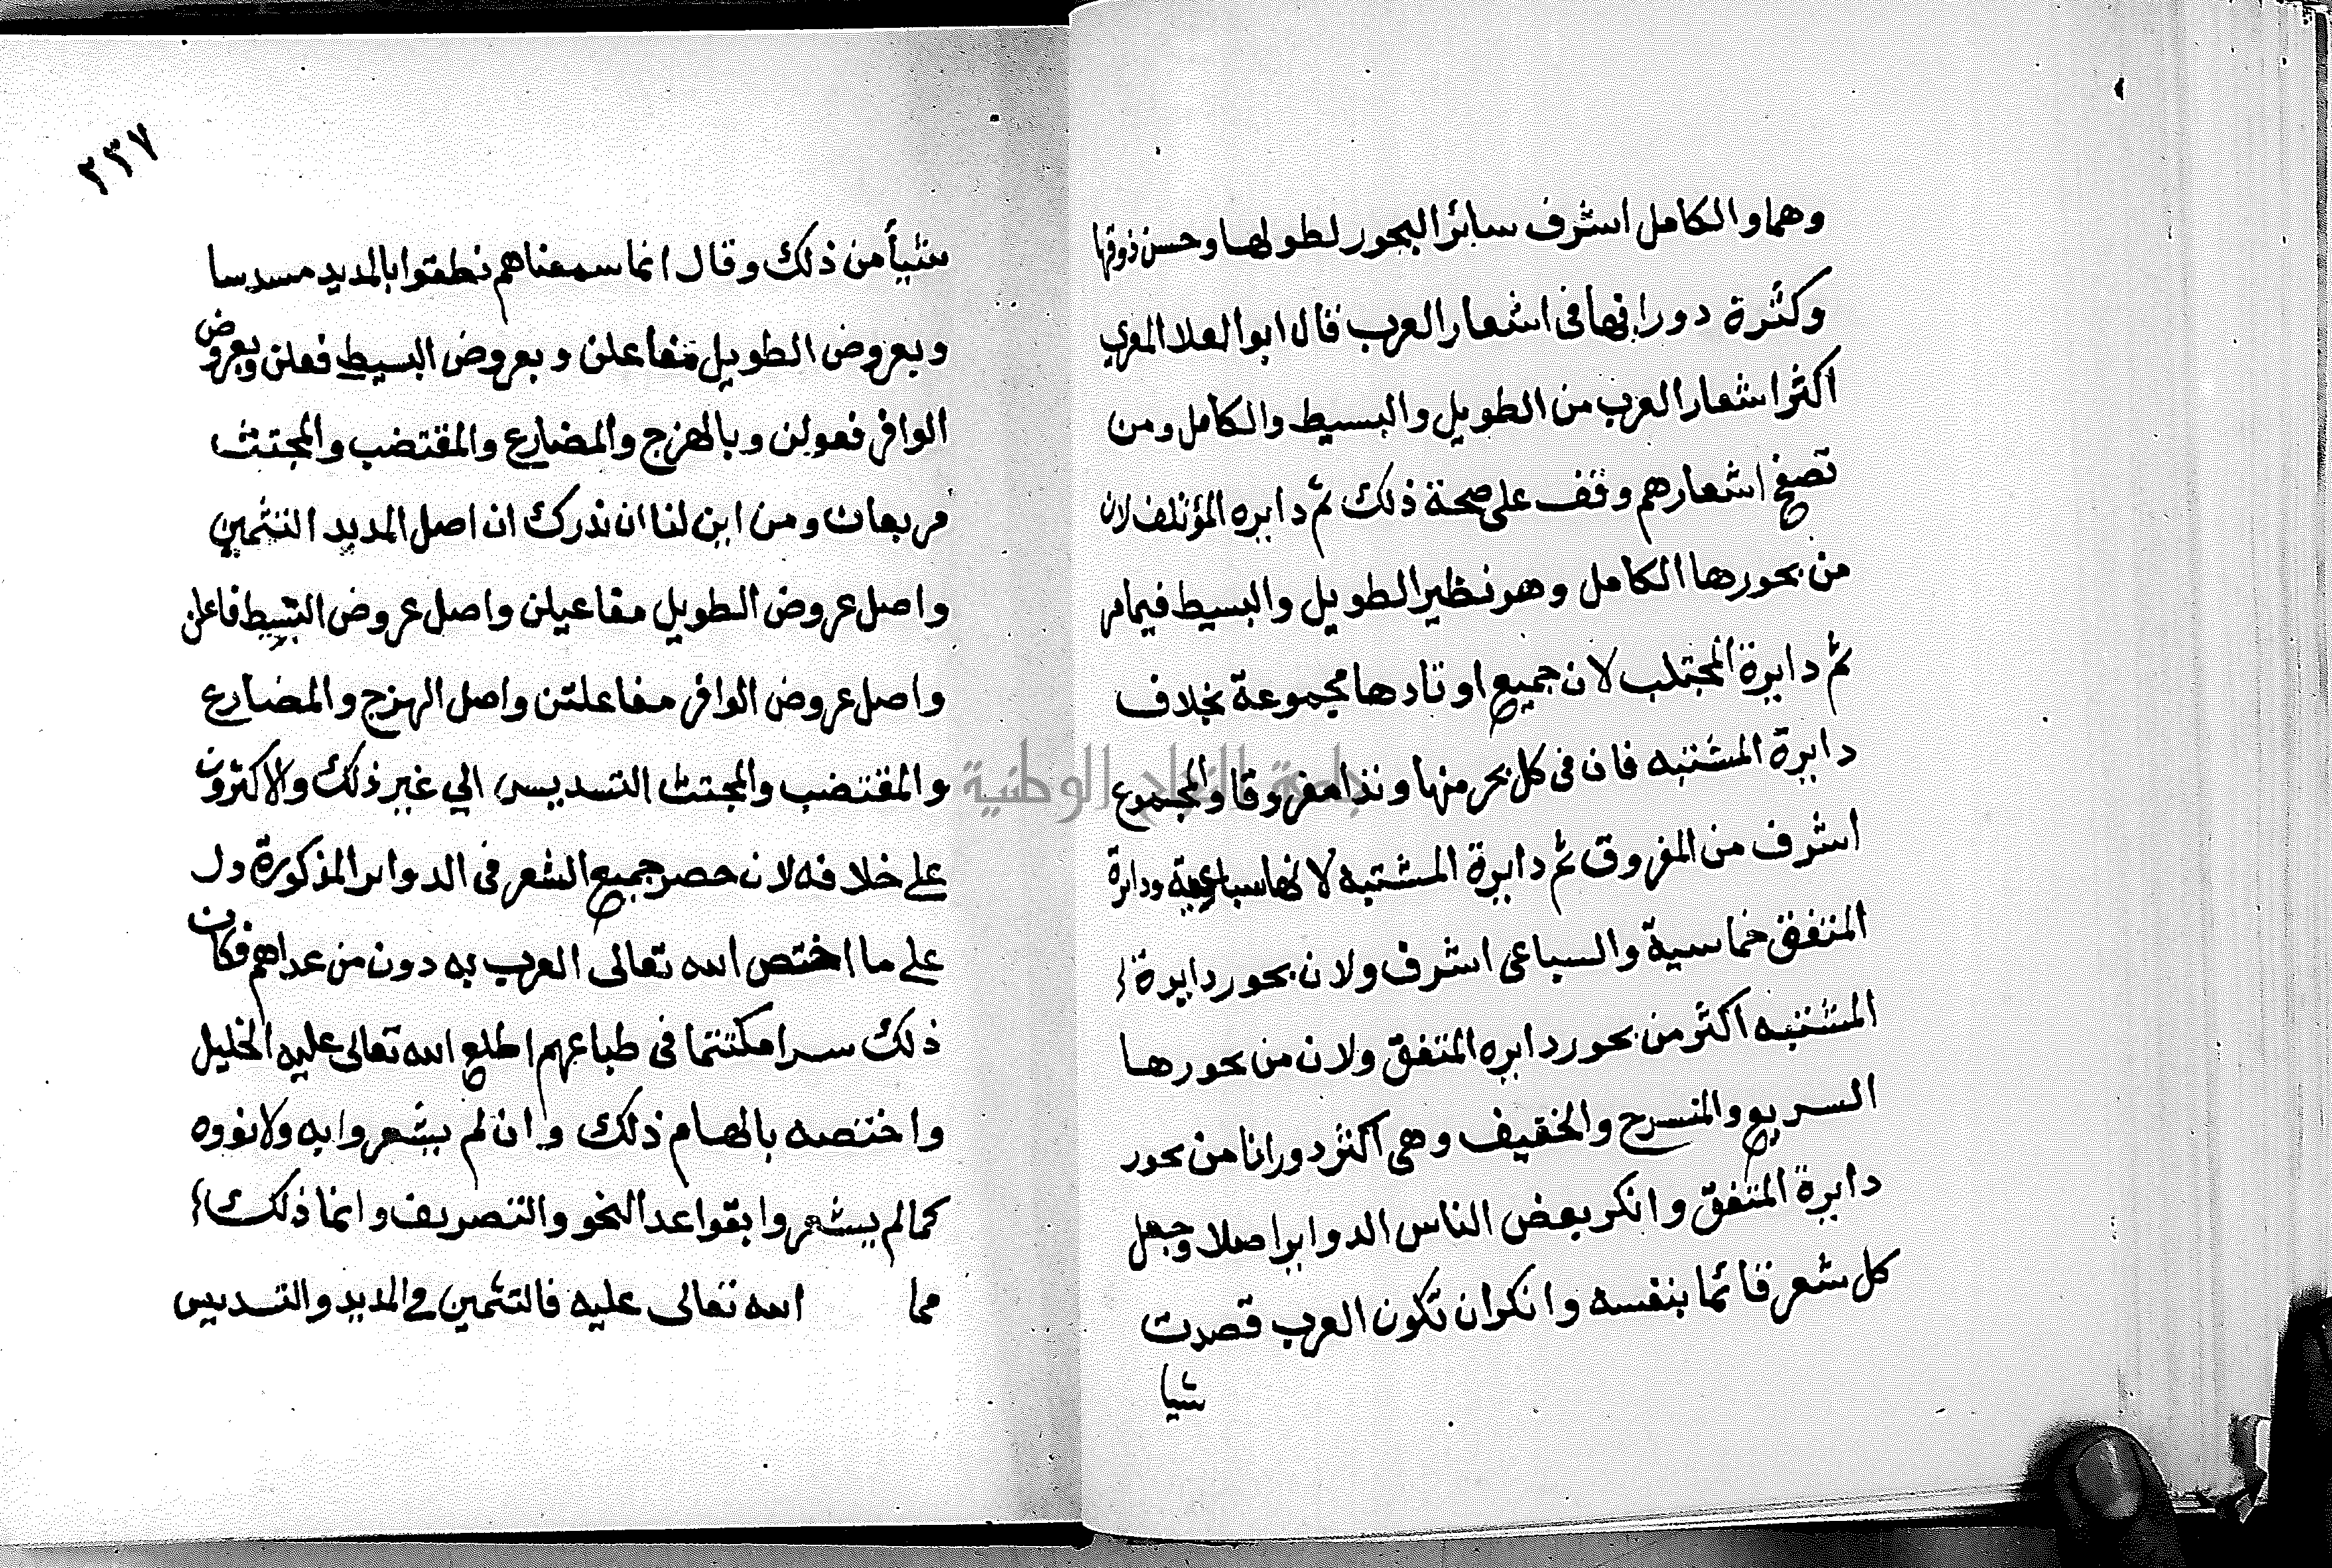 وهما والكامل اشرف سائر البحور لطولها وحسن ذوقها
وكثرة دورانها فى اشعار العرب قال ابوا لعلا المعري
اكثر اشعار العرب من الطويل والبسيط والكامل ومن
تصفح اشعارهم وقف على صحة ذلك ثم دايره المؤتلف لان
من بحورها الكامل وهو نظير الطويل والبسيط فيما مر
ثم دايرة المجتلب لان جميع اوتادها مجموعة بخلاف
دايرة المشتبه فان فى كل بحر منها وتدا مفروقا والمجموع
اشرف من المفروق ثم دايرة المشتبه لانها سباعية ودايرة
المتفق خماسية والسباعى اشرف ولان بحور دايرة
المشتبه اكثر من بحور دايره المتفق ولان من بحورها
السريع والمنسرح والخفيف وهى اكثر دورانا من بحور
دايرة المتفق وانكر بعض الناس الدواير اصلا وجعل
كل شعر قائما بنفسه وانكر ان تكون العرب قصدت
شيا
٢٣٧
شيأ من ذلك وقال انما سمعناهم نطقوا بالمديد مسدسا
وبعروض الطويل مفاعلن وبعروض البسيط فعلن وبعروض
الوافر فعولن وبالهزج والمضارع والمقتضب والمجتث
مربعات ومن اين لنا ان ندرك ان اصل المديد التثمين
واصل عروض الطويل مفاعيلن واصل عروض البسيط فاعلن
واصل عروض الوافر مفاعلتن واصل الهزج والمضارع
والمقتضب والمجتث التسديس الي غير ذلك والاكثرون
على خلافه لان حصر جميع الشعر فى الدواير المذكورة دل
على ما اختص الله تعالى العرب به دون من عداهم فكان
ذلك سرا مكتتما فى طباعهم اطلع الله تعالى عليه الخليل
واختصه بالهام ذلك وان لم يشعروا به ولا نووه
كما لم يشعروا بقواعد النحو والتصريف وانما ذلك
مما الله تعالى عليه فالتثمين في المديد والتسديس
جامعة النجاح الوطنية